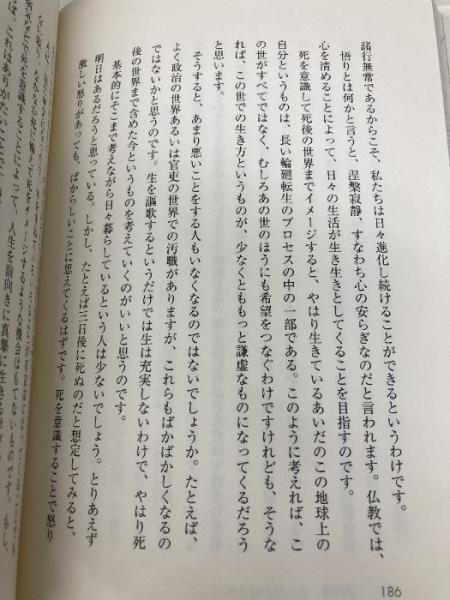 諸行無常であるからこそ、私たちは日々進化し続けることができるというわけです。
悟りとは何かと言うと、涅槃寂静、すなわち心の安らぎなのだと言われます。仏教では、
心を清めることによって、日々の生活が生き生きとしてくることを目指すのです。
死を意識して死後の世界までイメージすると、やはり生きているあいだのこの地球上の
自分というものは、長い輪廻転生のプロセスの中の一部である。このように考えれば、こ
の世がすべてではなく、むしろあの世のほうにも希望をつなぐわけですけれども、そうな
れば、この世での生き方というものが、少なくとももっと謙虚なものになってくるだろう
と思います。
そうすると、あまり悪いことをする人もいなくなるのではないでしょうか。たとえば、
よく政治の世界あるいは官吏の世界での汚職がありますが、これらもばかばかしくなるの
ではないかと思うのです。生を謳歌するというだけでは生は充実しないわけで、やはり死
後の世界まで含めた今というものを考えていくのがいいと思うのです。
基本的にそこまで考えながら日々暮らしているという人は少ないでしょう。とりあえず
明日はあるだろうと思っている。しかし、たとえば三日後に死ぬのだと想定してみると、
激しい怒りがあっても、ばからしいことに思えてくるはずです。死を意識することで怒り
186